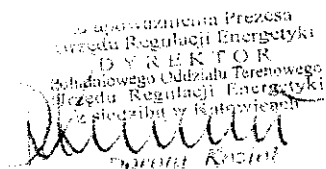 z upoważnienia Prezesa
Urzędu Regulacji Energetyki
DYREKTOR
Południowego Oddziału Terenowego
Urzędu Regulacji Energetyki
z siedzibą w Katowicach